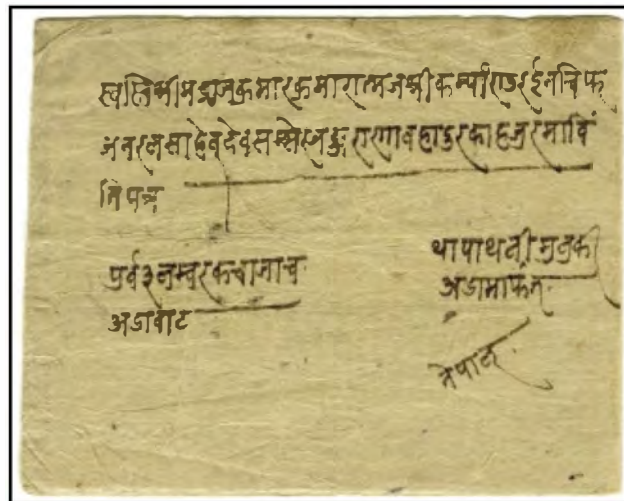 स्वस्तिश्रीमद्राजकुमारकुमारात्मजश्रीकम्यांडरईनचिफ
जनरलसाहेवदेवसम्सेरजङ्गराणावहादुरकाहजुरमाविं
तिपत्र
पुर्व३नम्वरकचाजाच
अडावाट
थापाथलीमुलुकी
अडामार्फत
नेपाल